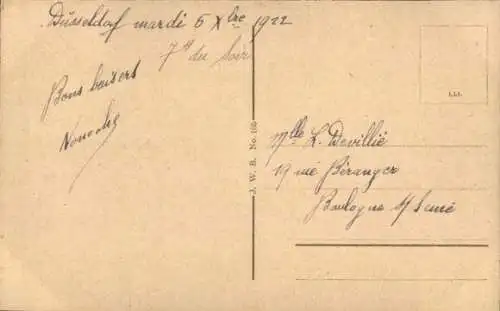 Düsseldorf mardi 5 Xbre 1922
7h du Soir
Bons baisers
J. W. B. No. 165
Mlle L. Devillié
19 rue Béranger
Boulogne s/ Seine